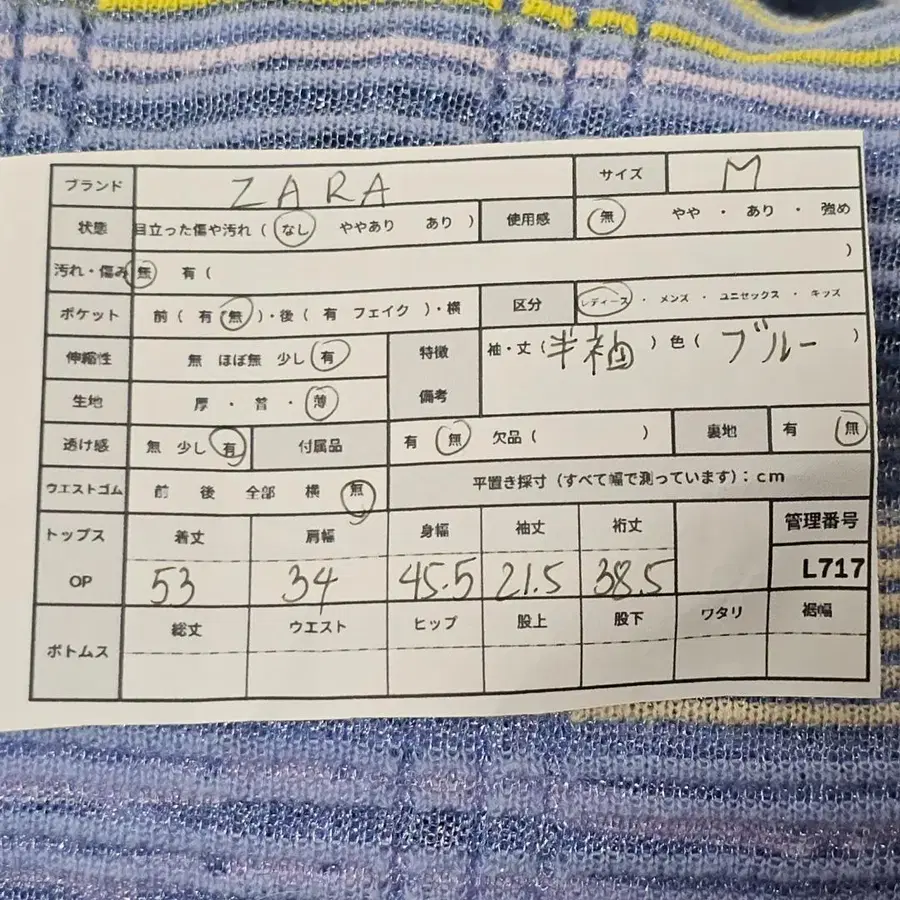 ブランド ZARA サイズ M
状態 目立った傷や汚れ ( なし ややあり あり ) 使用感 無 やや ・ あり ・ 強め
汚れ・傷み 無 有 ( )
ポケット 前 ( 有 無 )・後 ( 有 フェイク )・横 区分 レディース ・ メンズ ・ ユニセックス ・ キッズ
伸縮性 無 ほぼ無 少し 有 特徴 袖・丈 ( 半袖 ) 色 ( ブルー )
生地 厚 ・ 普 ・ 薄 備考
透け感 無 少し 有 付属品 有 無 欠品 ( ) 裏地 有 無
ウエストゴム 前 後 全部 横 無 平置き採寸 (すべて幅で測っています) : cm
トップス 着丈 肩幅 身幅 袖丈 裄丈 管理番号
OP 53 34 45.5 21.5 38.5 L717
ボトムス 総丈 ウエスト ヒップ 股上 股下 ワタリ 裾幅